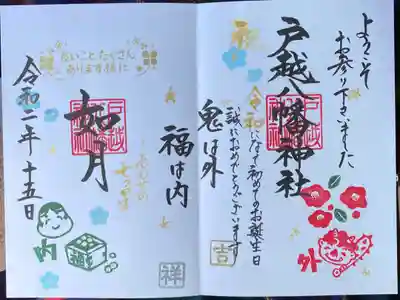 ようこそ
お参り下さいました
戸越八幡神社
祝
令和になって初めてのお誕生日
誠におめでとうございます
鬼は外
吉
外
良いことたくさん
ありますように
福は内
如月
令和二年 十五日
内
福
祥